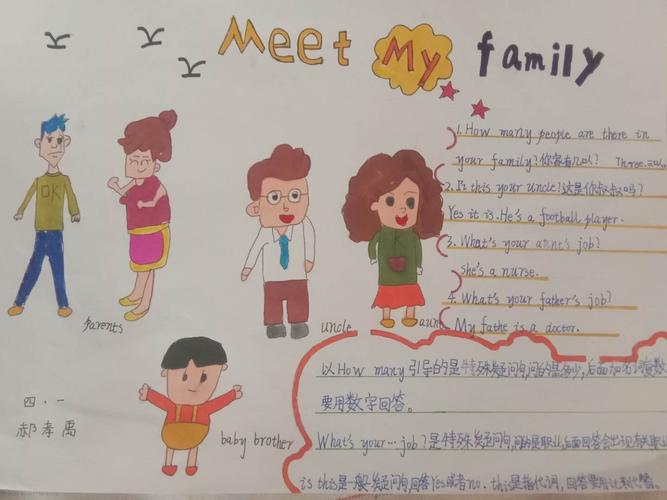 Meet My family
1. How many people are there in
your family? 你家有几口? Three. 三口人
2. Is this your uncle? 这是你叔叔吗?
Yes it is. He's a football player.
3. What's your aunt's job?
she's a nurse.
4. What's your father's job?
My fathe is a doctor.
OK
parents
uncle
aunt
baby brother
四·一
郝孝禹
以How many引导的是特殊疑问句,问的是多少,后面加名词复数
要用数字回答。
What's your…job?是特殊疑问句,问的是职业,后面回答会出现有关职业
is this是一般疑问句回答Yes或者no. this是指代词,回答要用it来代替。